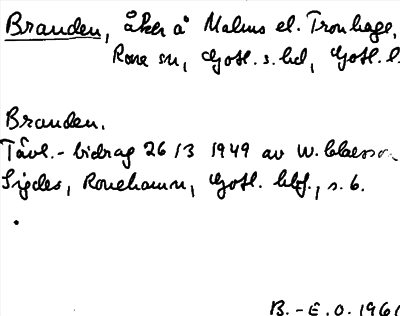 Branden, åker å Malms el. Tronhage,
Rone sn, Gotl. s. hd, Gotl. l.
Branden.
Tävl.-bidrag 26/3 1949 av W. Claesson
Sigdes, Ronehamn, Gotl. hbf., s. 6.
B.-E. O. 1961